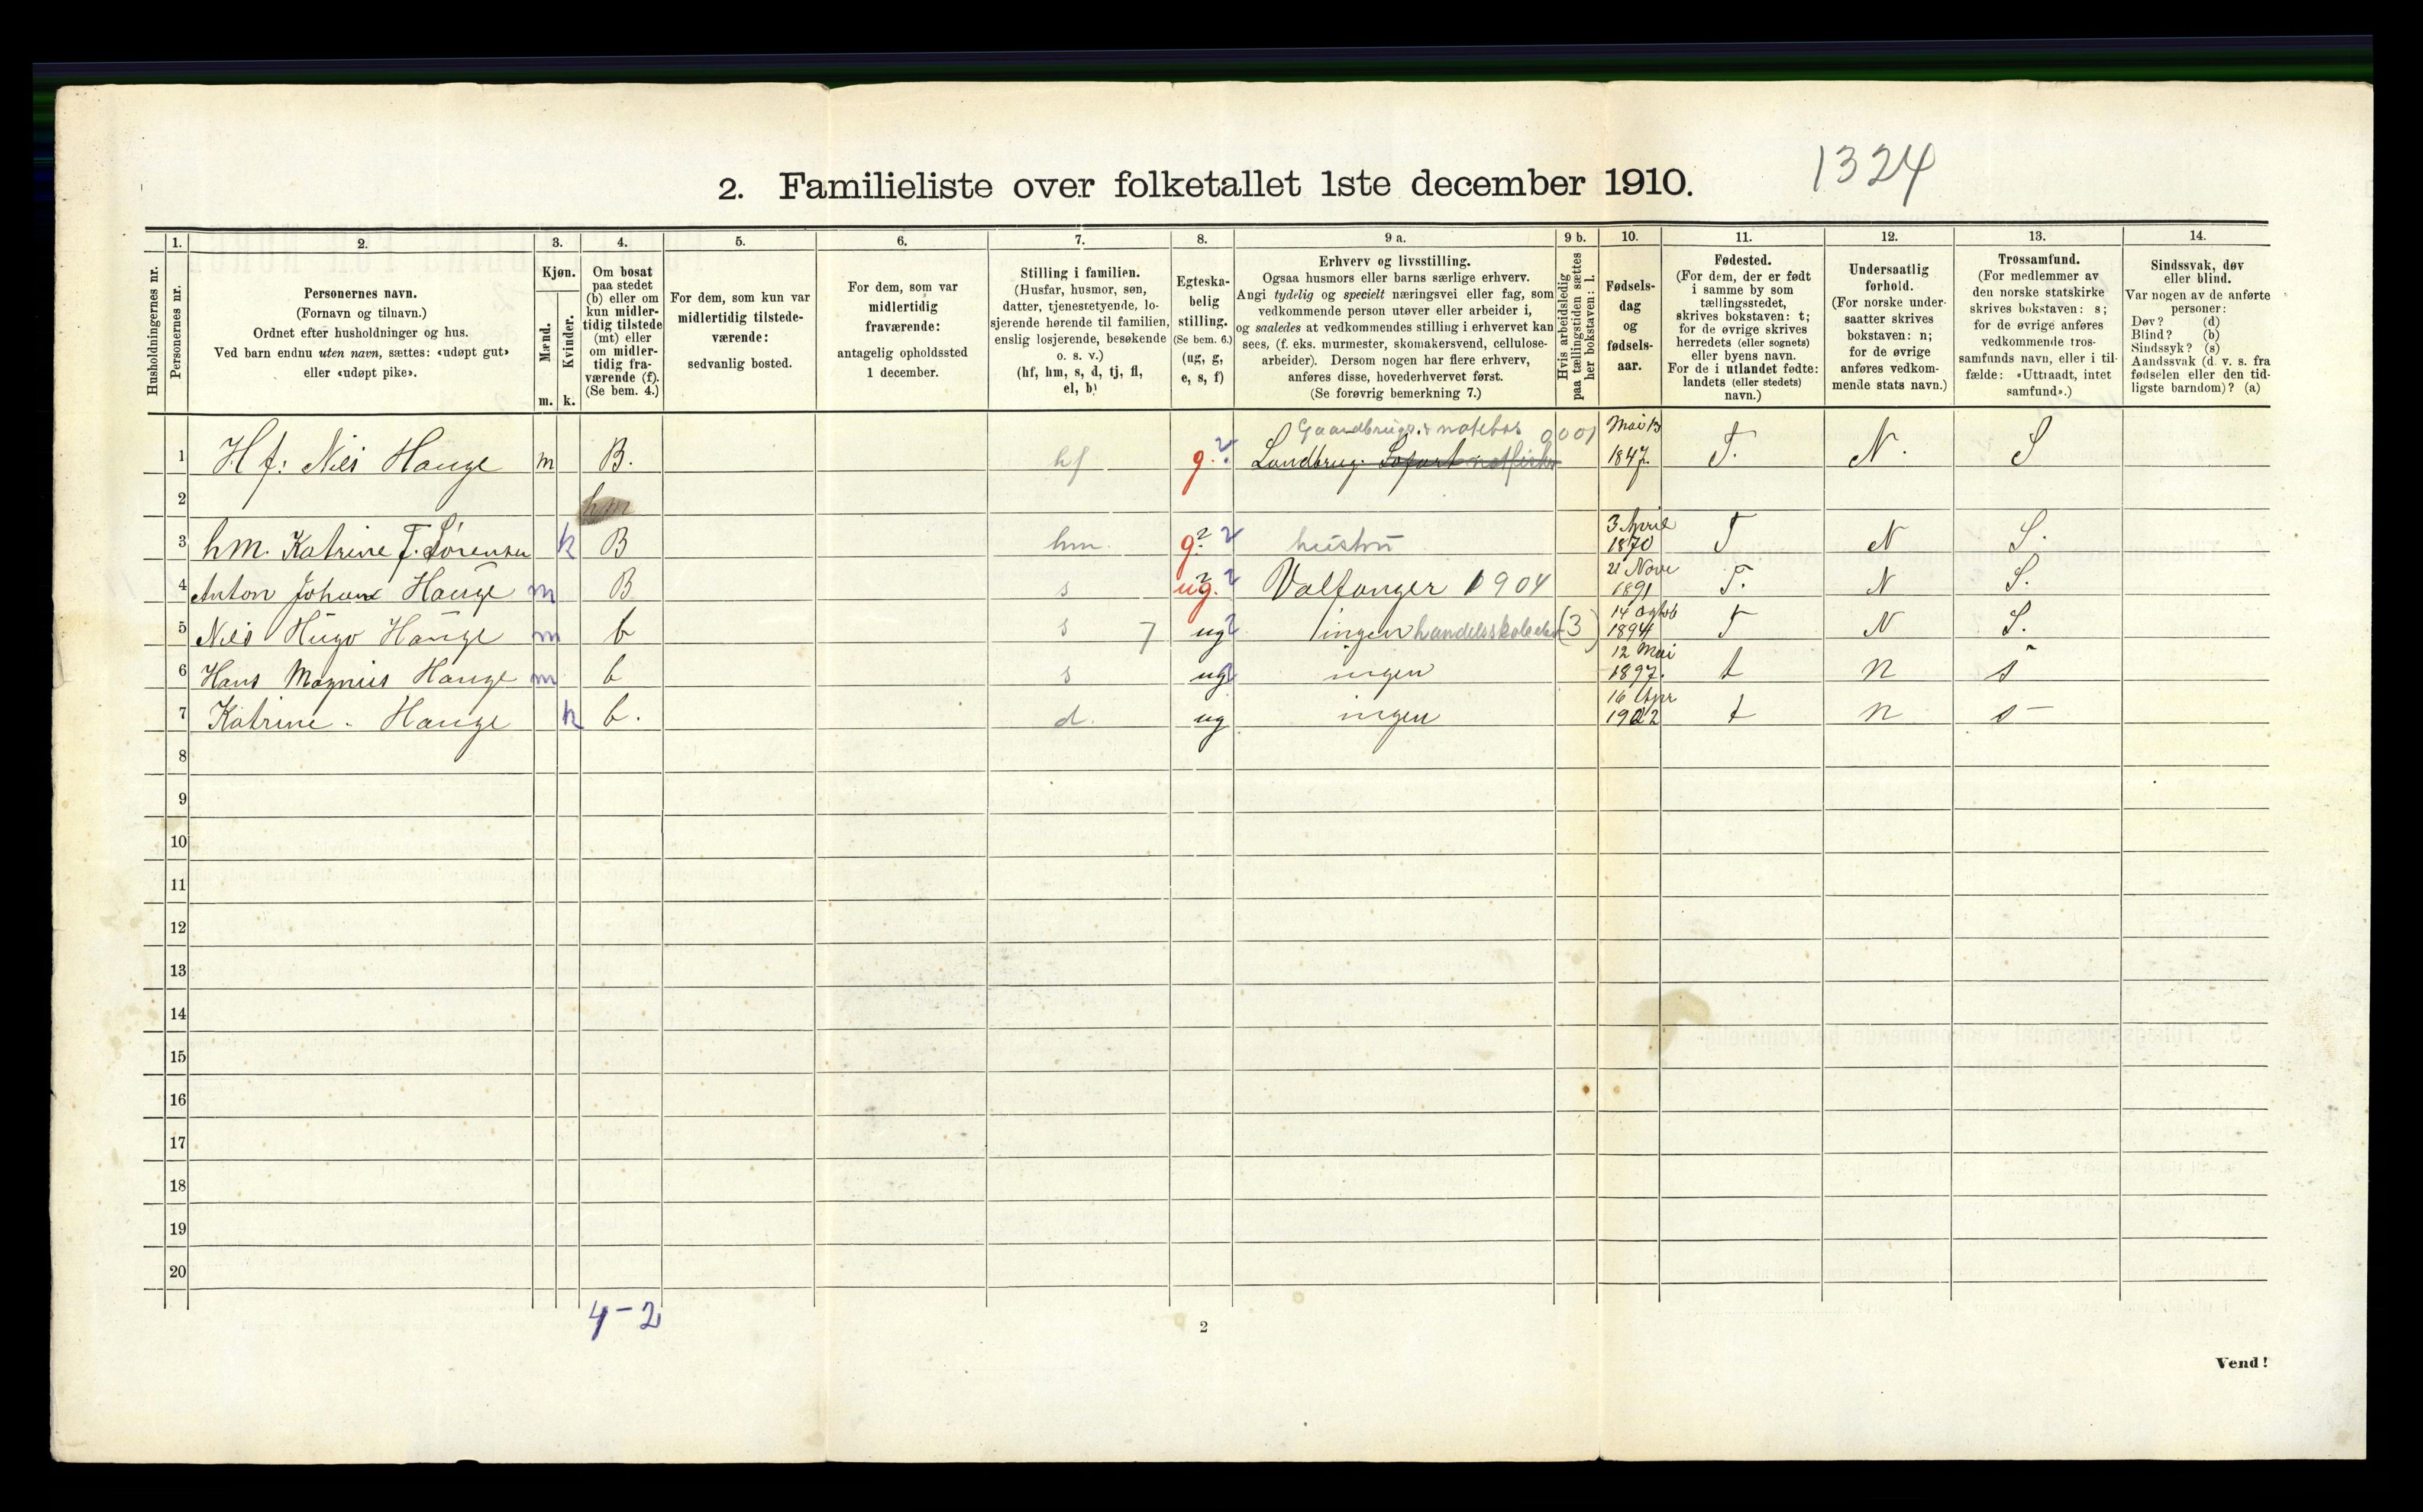 1324
2. Familieliste over folketallet 1ste december 1910.
Husholdningernes nr.
1. Personernes nr.
2. Personernes navn.
(Fornavn og tilnavn.)
Ordnet efter husholdninger og hus.
Ved barn endnu uten navn, sættes: «udøpt gut»
eller «udøpt pike».
3. Kjøn.
Mænd. m.
Kvinder. k.
4. Om bosat
paa stedet
(b) eller om
kun midler-
tidig tilstede
(mt) eller
om midler-
tidig fra-
værende (f).
(Se bem. 4.)
5. For dem, som kun var
midlertidig tilstede-
værende:
sedvanlig bosted.
6. For dem, som var
midlertidig
fraværende:
antagelig opholdssted
1 december.
7. Stilling i familien.
(Husfar, husmor, søn,
datter, tjenestetyende, lo-
sjerende hørende til familien,
enslig losjerende, besøkende
o. s. v.)
(hf, hm, s, d, tj, fl,
el, b)
8. Egteska-
belig
stilling.
(Se bem. 6.)
(ug, g,
e, s, f)
9 a. Erhverv og livsstilling.
Ogsaa husmors eller barns særlige erhverv.
Angi tydelig og specielt næringsvei eller fag, som
vedkommende person utøver eller arbeider i,
og saaledes at vedkommendes stilling i erhvervet kan
sees, (f. eks. murmester, skomakersvend, cellulose-
arbeider). Dersom nogen har flere erhverv,
anføres disse, hovederhvervet først.
(Se forøvrig bemerkning 7.)
9 b. Hvis arbeidsledig
paa tællingstiden sættes
her bokstaven: l.
10. Fødsels-
dag
og
fødsels-
aar.
11. Fødested.
(For dem, der er født
i samme by som
tællingsstedet,
skrives bokstaven: t;
for de øvrige skrives
herredets (eller sognets)
eller byens navn.
For de i utlandet fødte:
landets (eller stedets)
navn.)
12. Undersaatlig
forhold.
(For norske under-
saatter skrives
bokstaven: n;
for de øvrige
anføres vedkom-
mende stats navn.)
13. Trossamfund.
(For medlemmer av
den norske statskirke
skrives bokstaven: s;
for de øvrige anføres
vedkommende tros-
samfunds navn, eller i til-
fælde: «Uttraadt, intet
samfund».)
14. Sindssvak, døv
eller blind.
Var nogen av de anførte
personer:
Døv? (d)
Blind? (b)
Sindssyk? (s)
Aandssvak (d. v. s. fra
fødselen eller den tid-
ligste barndom)? (a)
Gaardbruger & notebas 0001 Mai 13
1 Hf: Nils Hauge m B. hf g. 2 Landbrug. 1847. T. N. S
2 hm
3 hm. Katrine F. Sørensen k B hm. g? 2 hustru 3 April 1870 T N S.
4 Anton Johan Hauge m B s ug. 2 Valfanger 1904 21 Nove 1891 T. N S.
5 Nils Hugo Hauge m b s 7 ug 2 ingen handelsskoleelev (3) 14 Ogtob 1894 T N S.
6 Hans Magnus Hauge m b s ug ingen 12 Mai 1897. t n s
7 Katrine - Hauge k b. d. ug ingen 16 Apr 1902 t n s
8
9
10
11
12
13
14
15
16
17
18
19
20
4-2
2
Vend!